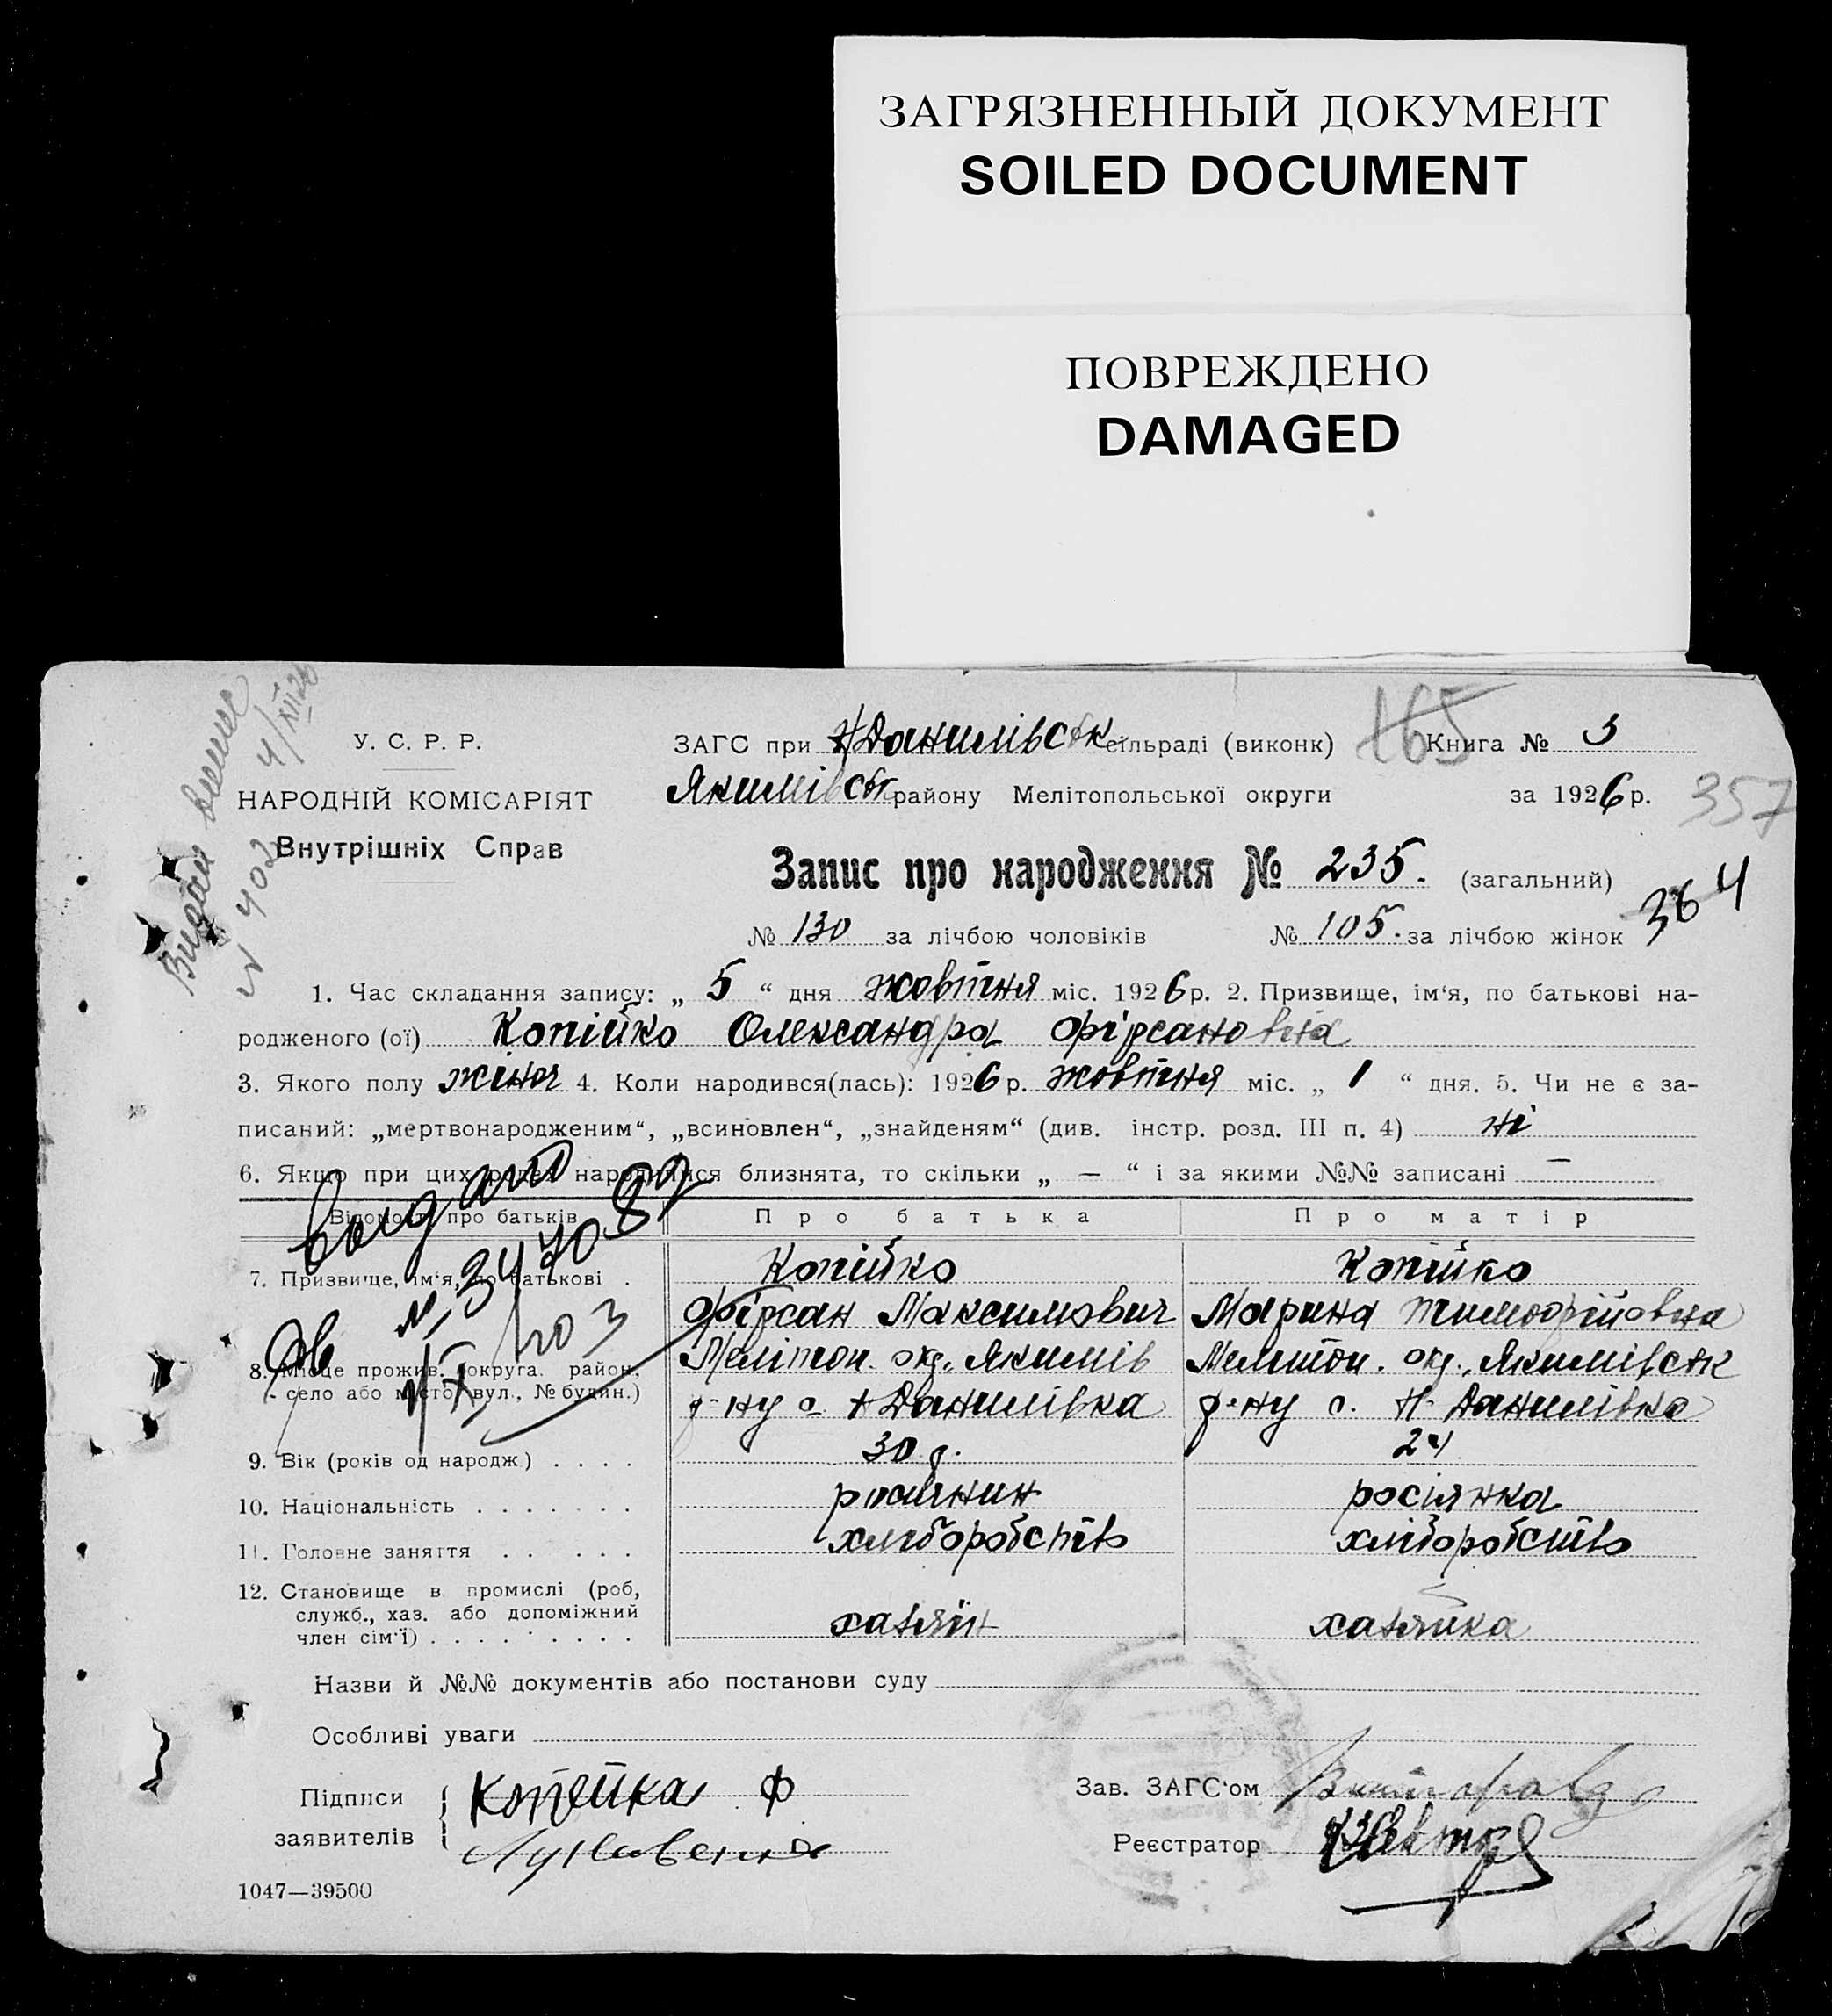 ЗАГРЯЗНЕННЫЙ ДОКУМЕНТ
SOILED DOCUMENT
ПОВРЕЖДЕНО
DAMAGED
У. С. Р. Р.
НАРОДНІЙ КОМІСАРІЯТ
Внутрішніх Справ
ЗАГС при Н Данилівськ сільраді (виконк) 165 Книга № 3
Якимівськ району Мелітопольської округи за 1926 р. 357
Запис про народження № 235. (загальний) 364
№ 130 за лічбою чоловіків № 105. за лічбою жінок
1. Час складання запису: „ 5 “ дня жовтня міс. 1926 р. 2. Призвище, ім‘я, по батькові на-
родженого (ої) Копійко Олександра Фірсановна
3. Якого полу жіноч 4. Коли народився(лась): 1926 р. жовтня міс. „ 1 “ дня. 5. Чи не є за-
писаний: „мертвонародженим“, „всиновлен“, „знайденям“ (див. інстр. розд. III п. 4) ні
6. Якщо при цих родах народилися близнята, то скільки „ — “ і за якими №№ записані —
Відомості про батьків Про батька Про матір
7. Призвище, ім‘я, по батькові . Копійко Копійко
Фірсан Максимович Марина Тимофійовна
8. Місце прожив. (округа, район, Мелітоп. окр. Якимів Мелітоп. окр., Якимівськ
село або місто, вул., № будин.) р-ну с Н Данилівка р-ну с. Н. Данилівка
9. Вік (років од народж) . . . . 30 р. 24
10. Національність . . . . . . . росіянин росіянка
11. Головне заняття . . . . . хліборобств хліборобств
12. Становище в промислі (роб,
служб., хаз. або допоміжний
член сім‘ї) . . . . . . . . . хазяїн хазяйка
Назви й №№ документів або постанови суду
Особливі уваги
Підписи Копейка Ф Зав. ЗАГС‘ом
заявителів Реєстратор
1047—39500
Видан
№ 402 4/XII 26
выдано
№ 347082